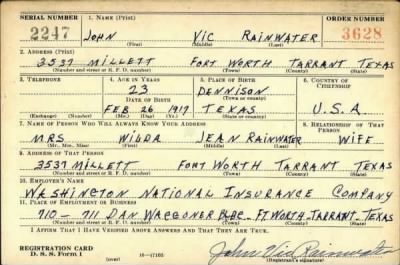 SERIAL NUMBER 1. NAME (Print) ORDER NUMBER
2247 JOHN VIC RAINWATER 3628
(First) (Middle) (Last)
2. ADDRESS (Print)
3537 MILLETT FORT WORTH TARRANT TEXAS
(Number and street or R. F. D. number) (Town) (County) (State)
3. TELEPHONE 4. AGE IN YEARS 5. PLACE OF BIRTH 6. COUNTRY OF CITIZENSHIP
23 DENNISON
DATE OF BIRTH (Town or county)
FEB 26 1917 TEXAS U.S.A.
(Exchange) (Number) (Mo.) (Day) (Yr.) (State or country)
7. NAME OF PERSON WHO WILL ALWAYS KNOW YOUR ADDRESS 8. RELATIONSHIP OF THAT PERSON
MRS JEAN RAINWATER WIFE
(Mr., Mrs., Miss) (First) (Middle) (Last)
9. ADDRESS OF THAT PERSON
3537 MILLETT FORT WORTH TARRANT TEXAS
(Number and street or R. F. D. number) (Town) (County) (State)
10. EMPLOYER'S NAME
WASHINGTON NATIONAL INSURANCE COMPANY
11. PLACE OF EMPLOYMENT OR BUSINESS
710-711 DAN WAGGONER BLDG - FT WORTH - TARRANT - TEXAS
(Number and street or R. F. D. number) (Town) (County) (State)
I AFFIRM THAT I HAVE VERIFIED ABOVE ANSWERS AND THAT THEY ARE TRUE.
REGISTRATION CARD
D. S. S. Form 1 (over) 16-17105 John Vic Rainwater